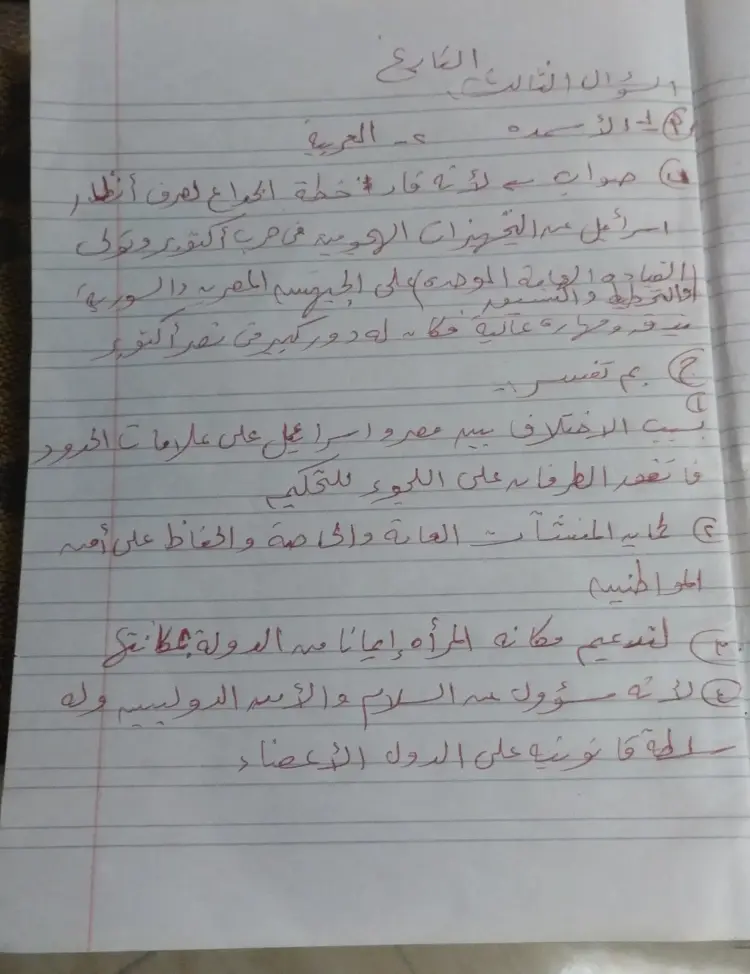 التاريخ
السؤال الثالث
(أ) ١- الأسمدة ٢- العربية
(ب) صواب ← لأنه قاد خطة الخداع لصرف أنظار
اسرائيل عن التجهيزات الهجومية فى حرب أكتوبر وتولى
القيادة العامة الموحدة على الجبهتين المصرية والسورية
والتخطيط والتنسيق
بدقة ومهارة عالية فكان له دور كبير فى نصر أكتوبر
(ج) بم تفسر ..
١ بسبب الاختلاف بين مصر واسرائيل على علامات الحدود
فاتفق الطرفان على اللجوء للتحكيم
(٢) لحماية المنشآت العامة والخاصة والحفاظ على أمن
المواطنين
(٣) لتدعيم مكانة المرأة إيمانا من الدولة بمكانتها
(٤) لأنه مسؤول عن السلام والأمن الدوليين وله
سلطة قانونية على الدول الأعضاء